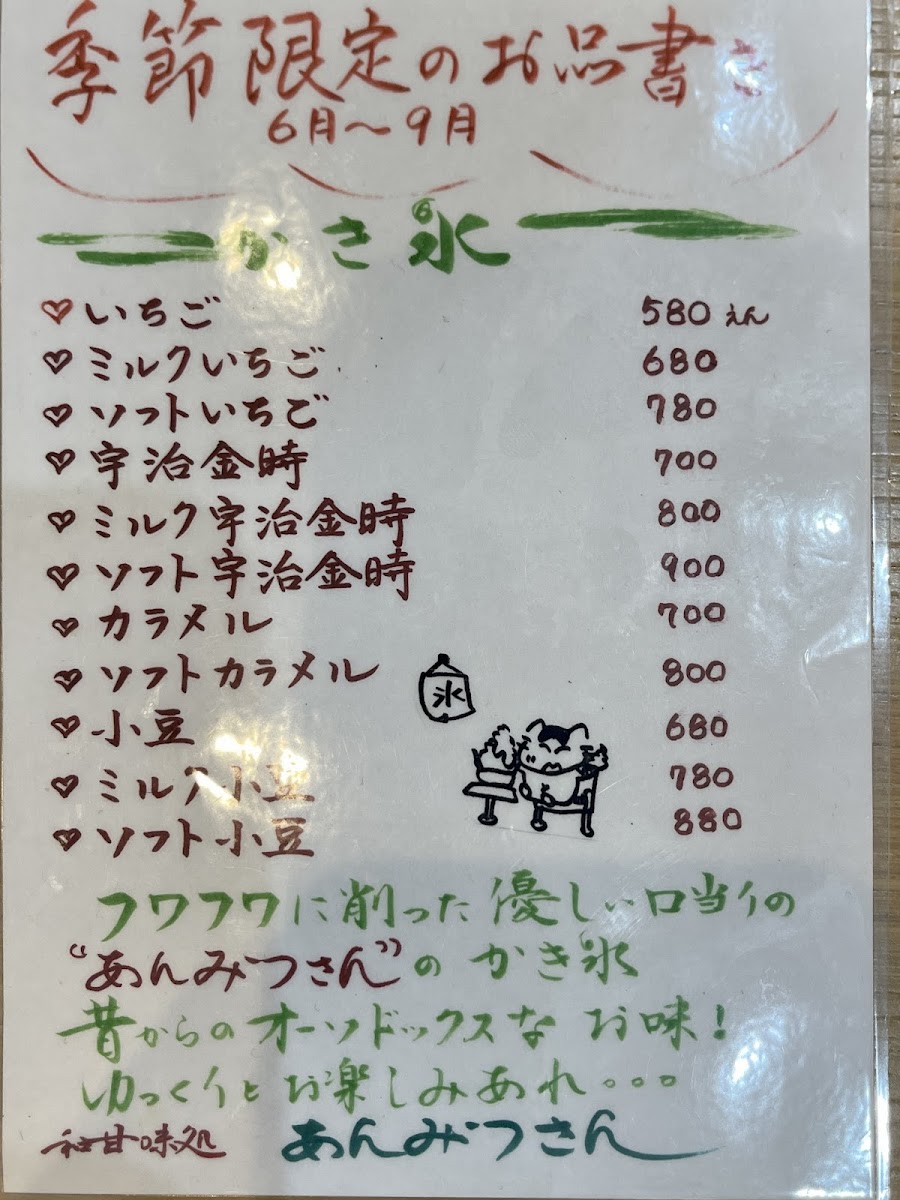 季節限定のお品書き
6月〜9月
かき氷
♡いちご 580えん
♡ミルクいちご 680
♡ソフトいちご 780
♡宇治金時 700
♡ミルク宇治金時 800
♡ソフト宇治金時 900
♡カラメル 700
♡ソフトカラメル 800
氷
♡小豆 680
♡ミルク小豆 780
♡ソフト小豆 880
フワフワに削った優しい口当りの
“あんみつさん”のかき氷
昔からのオーソドックスなお味!
ゆっくりとお楽しみあれ...
和甘味処 あんみつさん